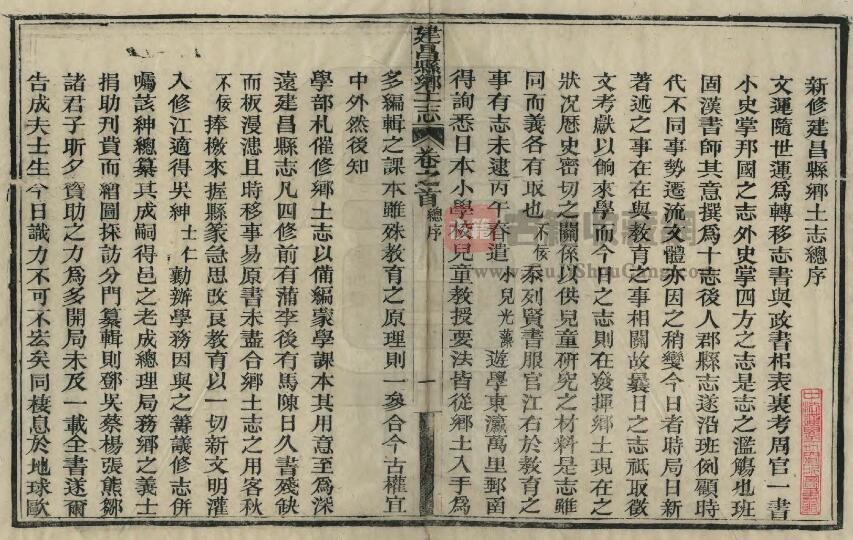 新修建昌縣鄉土志總序
文運隨世運為轉移志書與政書相表裏考周官一書
小史掌邦國之志外史掌四方之志是志之濫觴也班
固漢書師其意撰為十志後人郡縣志遂沿班例顧時
代不同事勢遷流文體亦因之稍變今日者時局日新
著述之事在在與教育之事相關故曩日之志祗取徵
文考獻以餉來學而今日之志則在發揮鄉土現在之
狀況歷史密切之關係以供兒童研究之材料是志雖
同而義各有取也不佞忝列賢書服官江右於教育之
事有志未逮丙午春遣兒光藻遊學東瀛萬里郵函
得詢悉日本小學校兒童教授要法皆從鄉土入手為
建昌縣鄉土志 卷之首 總序 一
多編輯之課本雖殊教育之原理則一參合今古權宜
中外然後知
學部札催修鄉土志以備編蒙學課本其用意至為深
遠建昌縣志凡四修前有蒲李後有馬陳日久書殘缺
而板漫漶且時移事易原書未盡合鄉土志之用客秋
不佞捧檄來握縣篆急思改良教育以一切新文明灌
入修江適得吳紳士仁勷辦學務因與之籌議修志併
囑該紳總纂其成嗣得邑之老成總理局務鄉之義士
捐助刊貲而繪圖採訪分門纂輯則鄧吳蔡楊張熊鄒
諸君子昕夕贊助之力為多開局未及一載全書遂爾
告成夫士生今日識力不可不宏矣同棲息於地球歐
古籍收藏網